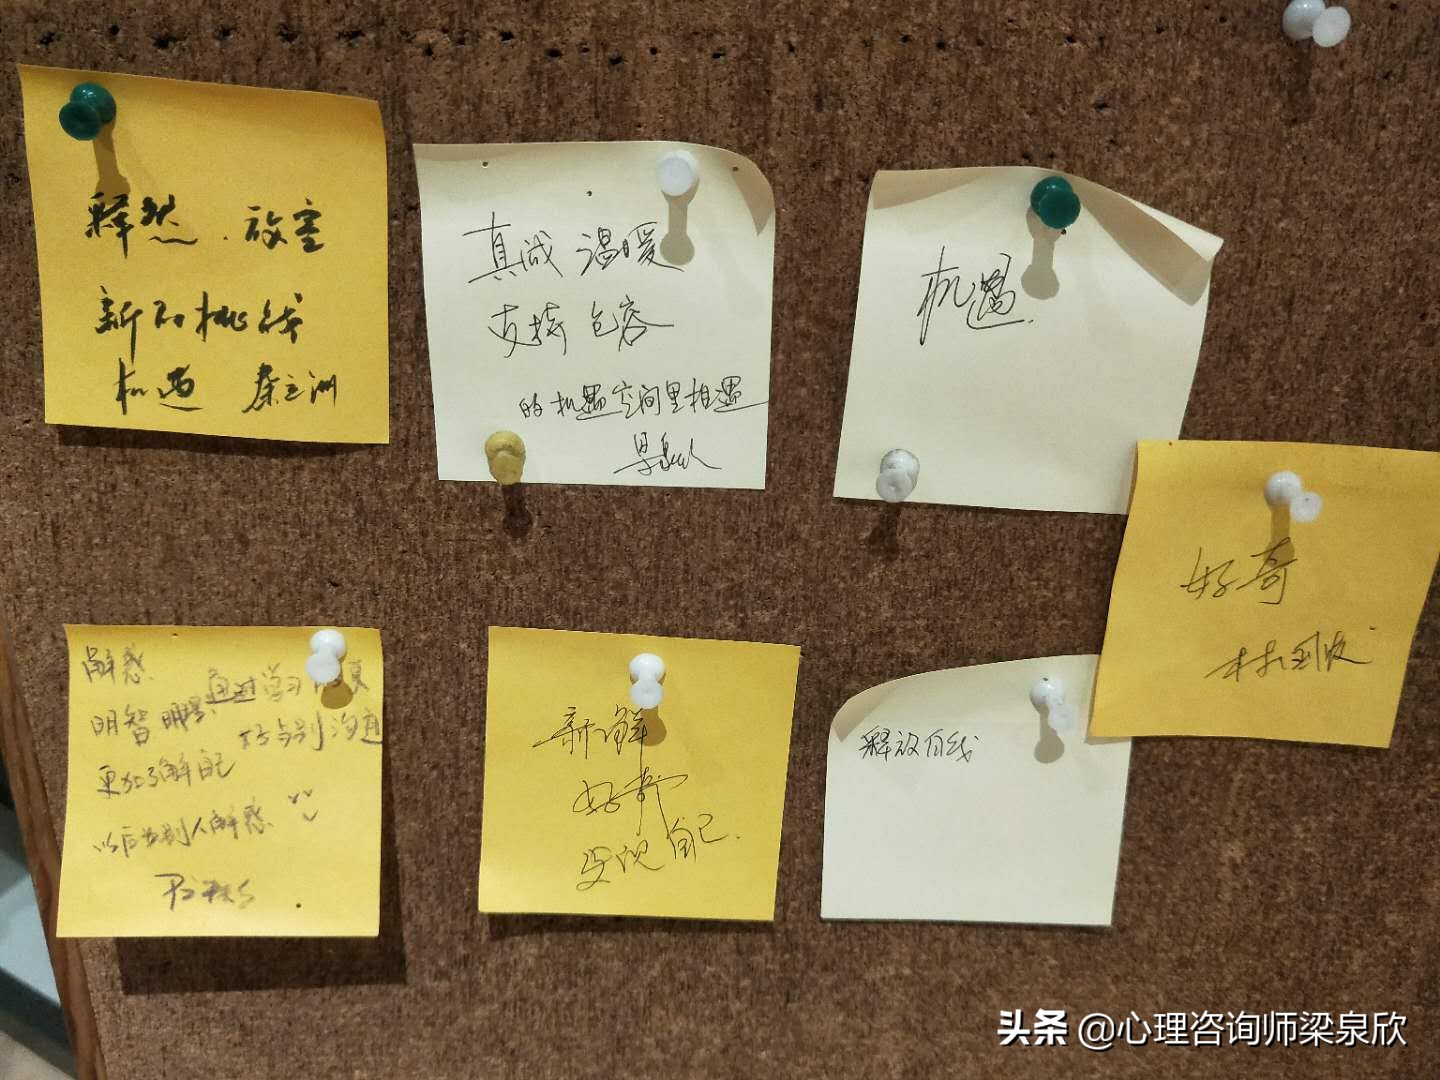 释然 放空
新的挑战
机遇 秦立洲
真诚 温暖
支持 包容
的机遇空间里相遇
机遇
好奇
解惑
明智 通过学习
与别 沟通
更加了解自己
以后为别人解惑
新鲜
好奇
发现自己.
释放自我
头条 @心理咨询师梁泉欣